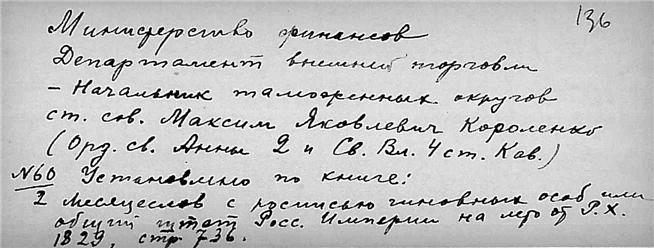 136
Министерство финансов
Департамент внешней торговли
– Начальник таможенных округов
ст. сов. Максим Яковлевич Короленко
(Орд. св. Анны 2 и Св. Вл. 4 ст. Кав.)
№60 Установлено по книге:
2 Месяцеслов с росписью чиновных особ или
общий штат Росс. Империи на лето от Р.Х.
1829, стр. 736.